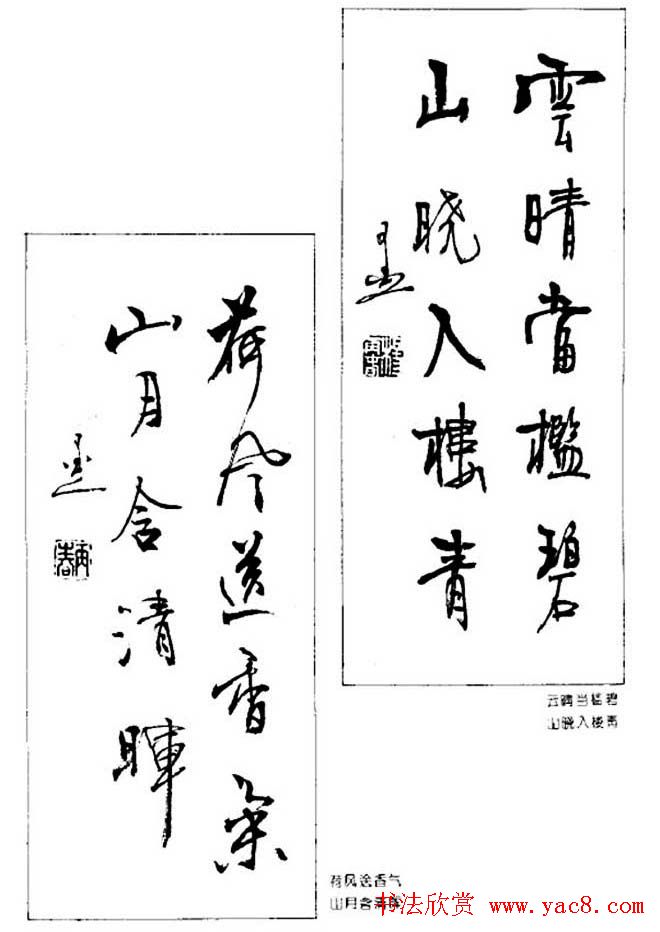 雲晴當檻碧
山晓入樓青
云晴当槛碧
山晓入楼青
荷风送香气
山月含清暉
荷风送香气
山月含清晖
书法欣赏 www.yac8.com